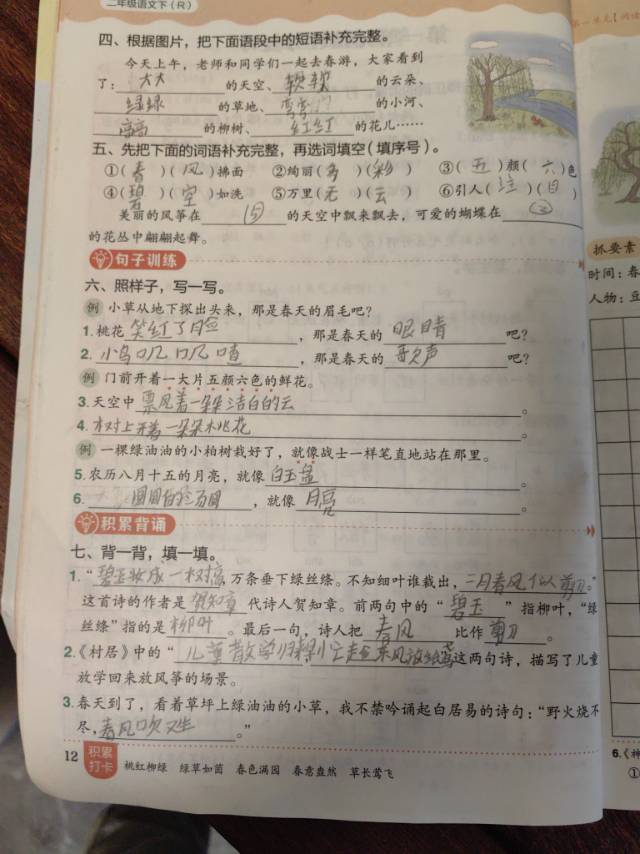 二年级语文下（R）
四、根据图片，把下面语段中的短语补充完整。
今天上午，老师和同学们一起去春游，大家看到
了：大大的天空、软软的云朵、
绿绿的草地、弯弯的的小河、
高高的柳树、红红的花儿……
五、先把下面的词语补充完整，再选词填空（填序号）。
①（春）（风）拂面 ②绚丽（多）（彩） ③（五）颜（六）色
④（碧）（空）如洗 ⑤万里（无）（云） ⑥引人（注）（目）
美丽的风筝在④的天空中飘来飘去，可爱的蝴蝶在③
的花丛中翩翩起舞。
句子训练
六、照样子，写一写。
例 小草从地下探出头来，那是春天的眉毛吧？
1.桃花笑红了脸，那是春天的眼睛吧？
2.小鸟叽叽喳，那是春天的歌声吧？
例 门前开着一大片五颜六色的鲜花。
3.天空中票风着一朵朵洁白的云。
4.树上开着一朵朵桃花。
例 一棵绿油油的小柏树栽好了，就像战士一样笔直地站在那里。
5.农历八月十五的月亮，就像白玉盘。
6.圆圆的，就像月亮。
积累背诵
七、背一背，填一填。
1.“碧玉妆成一树高万条垂下绿丝绦。不知细叶谁裁出，二月春风似剪刀。”
这首诗的作者是贺知章代诗人贺知章。前两句中的“碧玉”指柳叶，“绿
丝绦”指的是柳叶。最后一句，诗人把春风比作剪刀。
2.《村居》中的“儿童散学归来早忙趁东风放纸鸢这两句诗，描写了儿童
放学回来放风筝的场景。
3.春天到了，看着草坪上绿油油的小草，我不禁吟诵起白居易的诗句：“野火烧不
尽，春风吹又生。”
12 积累打卡 桃红柳绿 绿草如茵 春色满园 春意盎然 草长莺飞
抓要素
时间：春
人物：豆
6.《神
①